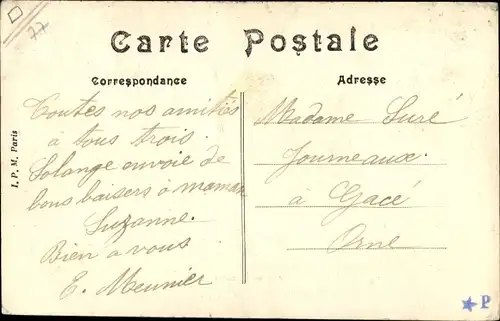 77
Carte Postale
Correspondance
Adresse
Toutes nos amitiés
à tous trois.
Solange envoie de
bons baisers à maman
Suzanne.
Bien à vous
E. Meunier
Madame Suré
Journeaux
à Gacé
Orne
I. P. M. Paris
P